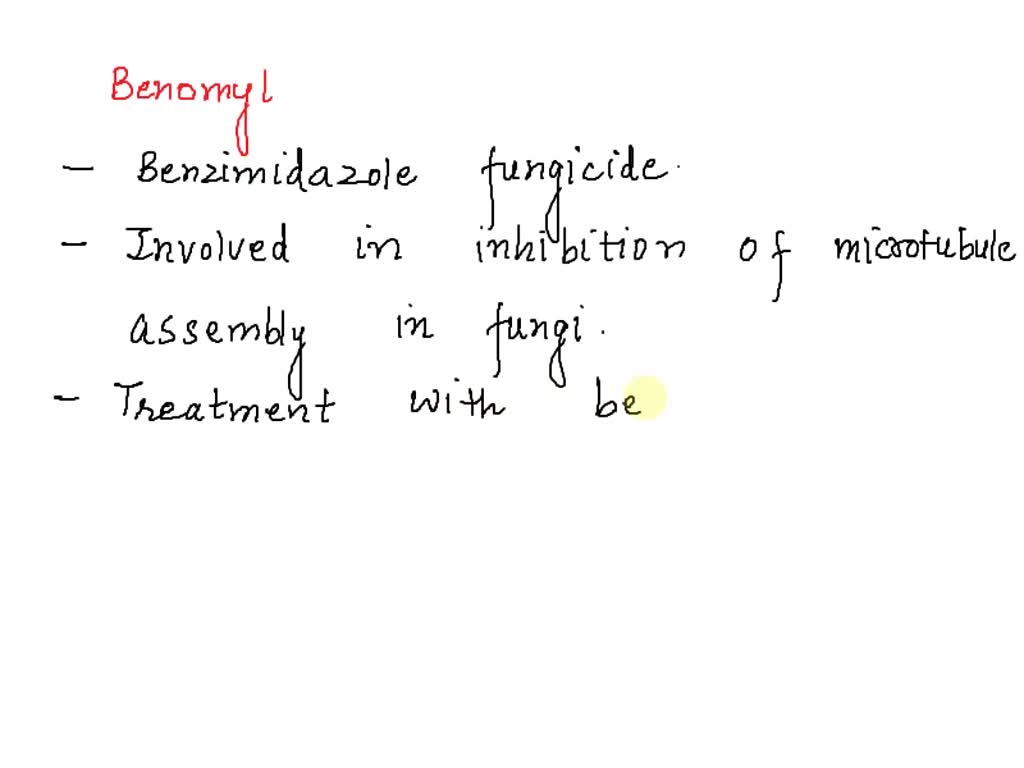 Benomyl
- Benzimidazole fungicide.
- Involved in inhibition of microtubule
assembly in fungi.
- Treatment with be